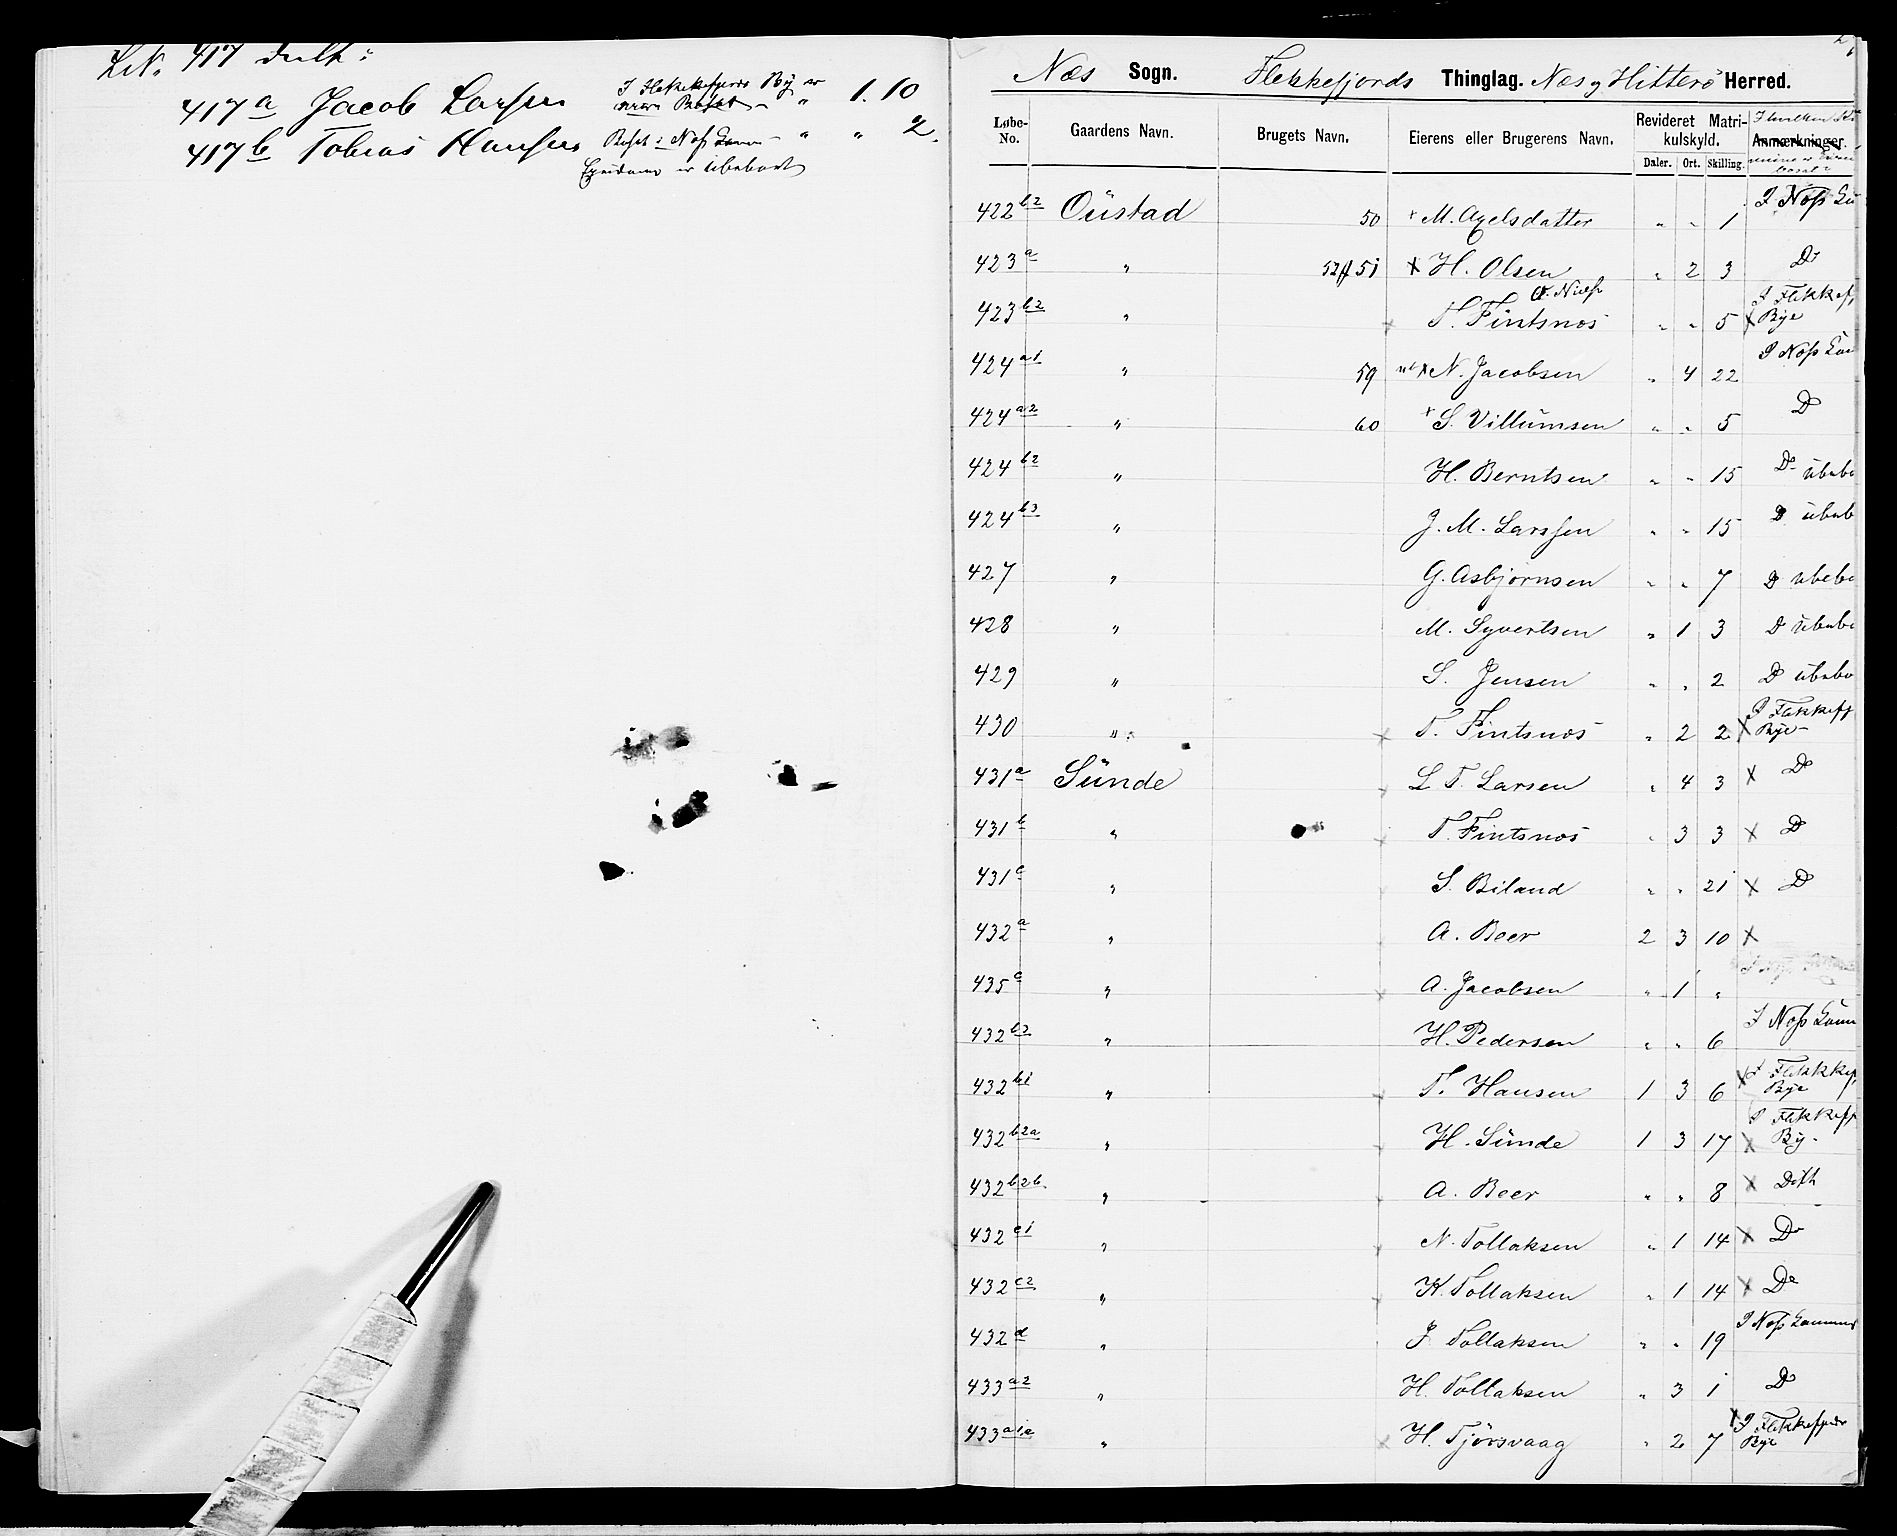 LN. 417 delt:
417a Jacob Larsen I Flekkefjords By er 1. 10
417b Tobias Hansen Bosat i Næs " " 2.
Eyendom er ubeboet
Næs Sogn. Flekkefjords Thinglag. Næs og Hitterö Herred.
Løbe-No. Gaardens Navn. Brugets Navn. Eierens eller Brugerens Navn. Revideret Matrikulskyld. Anmærkninger.
Daler. Ort. Skilling.
422 b2 Oustad 50 M. Axelsdatter " " 1 I Næs
423 a " 52 51 X H. Olsen " 2 3 Do
423 b2 " T. Fintsnos " " 5 X I Flekkef Bye
424 a1 " 59 X N. Jacobsen " 4 22 I Næs
424 a2 " 60 S. Villumsen " " 5 D
424 b2 " H. Berntsen " " 15 Do ubebo
424 b3 " J. M. Larssen " " 15 D ubeb
427 " G. Asbjornsen " " 7 D ubebo
428 " M. Syvertsen " 1 3 D ubebo
429 " S. Jensen " " 2 D ubebo
430 " T. Fintsnos " 2 2 X I Flekkefj Bye
431 a Sunde L T. Larsen " 4 3 X Do
431 b " T. Fintsnos " 3 3 X D
431 c " S. Biland " " 21 X D
432 a " A. Beer 2 3 10 X
435 c " A. Jacobsen " 1 "
432 b3 " H. Pedersen " " 6 I Næs
432 b1 " T. Hansen 1 3 6 X I Flekkef Bye
432 b2a " H. Sunde 1 3 17 X I Flekkefj By
432 b2b " A. Beer " " 8 X Dith
432 c1 " N. Tollaksen " 1 14 X Do
432 c2 " K. Tollaksen " 1 14 X Do
432 d " J Tollaksen " " 19 I Næs
433 a2 " H. Tollaksen " 3 1 Do
433 a1a " H. Tjörsvaag " 2 7 X I Flekkefjords Bye